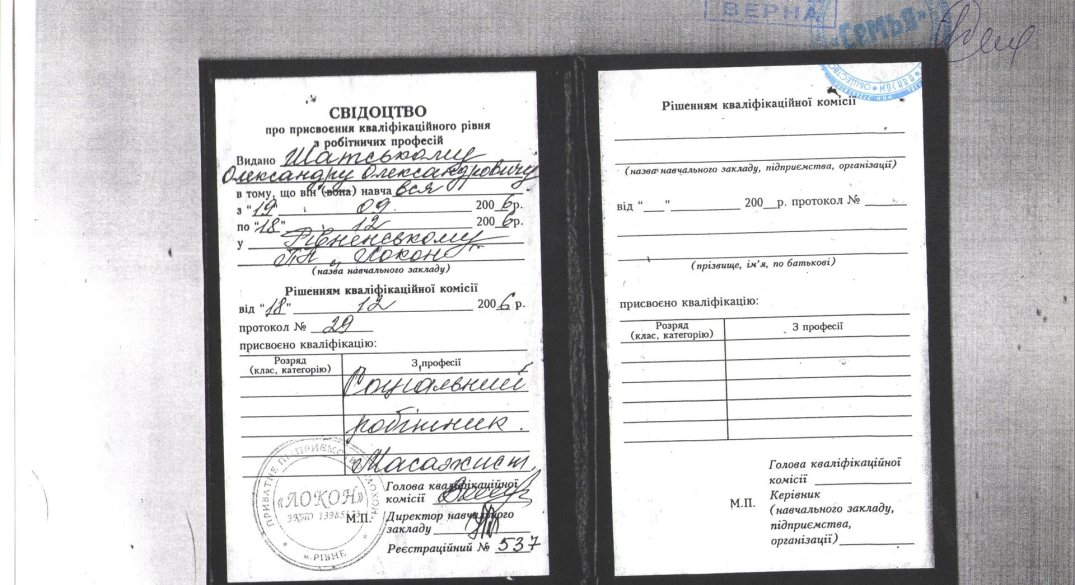 ВЕРНА
СЕМЬЯ
МОСКВА
СВІДОЦТВО
про присвоєння кваліфікаційного рівня
з робітничих професій
Видано Шатському
Олександру Олександровичу
в тому, що він (вона) навча вся
з "19" 09. 2006 р.
по "18" 12 2006 р.
у Рівненському
ПП „Локон"
(назва навчального закладу)
Рішенням кваліфікаційної комісії
від "18" 12 2006 р.
протокол № 29
присвоєно кваліфікацію:
Розряд
(клас, категорію)
З професії
Соціальний
робітник.
Масажист
ПРИВАТНЕ ПІДПРИЄМСТВО
«ЛОКОН»
м. РІВНЕ
Голова кваліфікаційної
комісії
М.П. Директор навчального
закладу
Реєстраційний № 537
Рішенням кваліфікаційної комісії
(назва навчального закладу, підприємства, організації)
від "___" 200__р. протокол №
(прізвище, ім'я, по батькові)
присвоєно кваліфікацію:
Розряд
(клас, категорію)
З професії
Голова кваліфікаційної
комісії
М.П. Керівник
(навчального закладу,
підприємства,
організації)